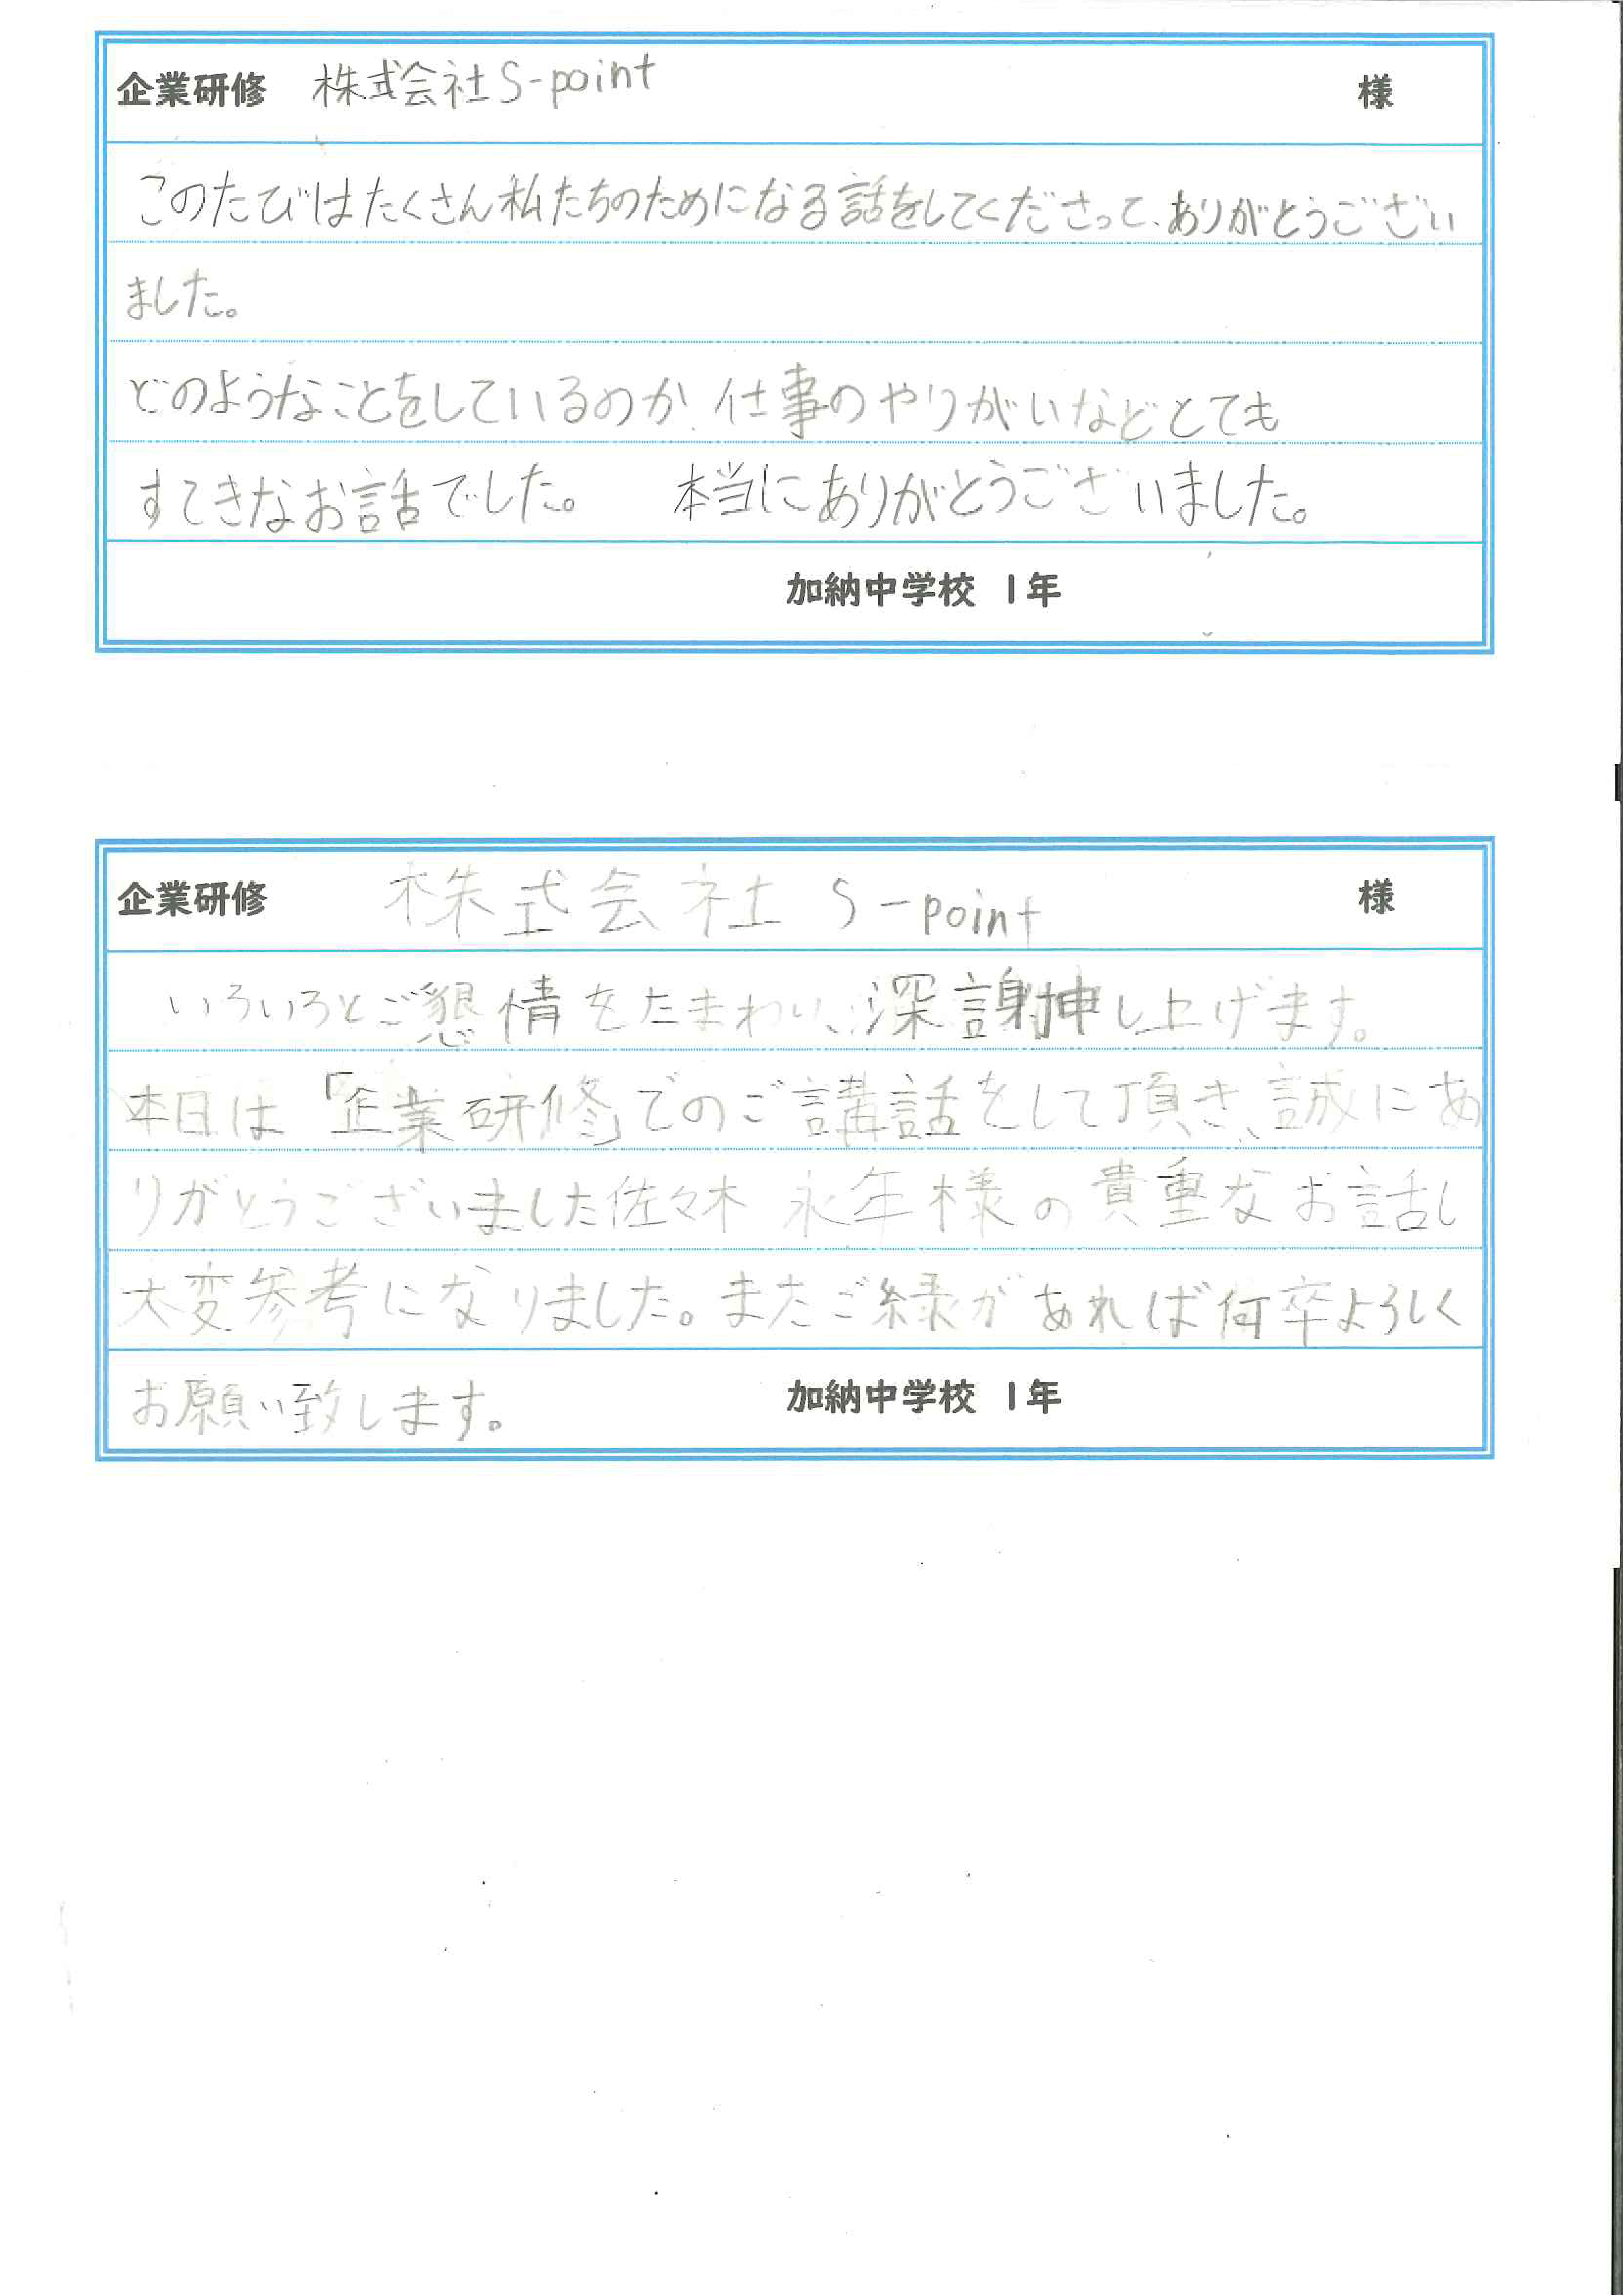 企業研修 株式会社S-point 様
このたびはたくさん私たちのためになる話をしてくださって、ありがとうござい
ました。
どのようなことをしているのか、仕事のやりがいなどとても
すてきなお話でした。 本当にありがとうございました。
加納中学校 1年
企業研修 株式会社 S-point 様
いろいろとご懇情をたまわり、深謝申し上げます。
本日は「企業研修」でのご講話をして頂き、誠にあ
りがとうございました佐々木 永年様の貴重なお話し
大変参考になりました。またご縁があれば何卒よろしく
お願い致します。 加納中学校 1年